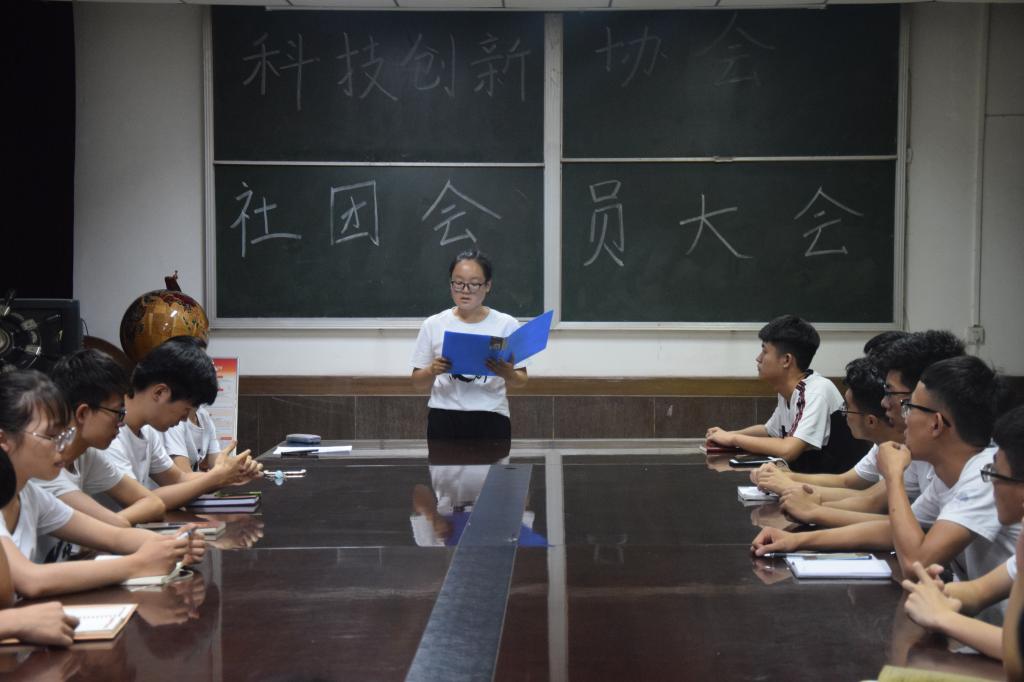 科技创新协会
社团会员大会